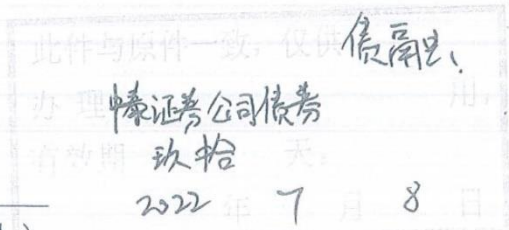 此件与原件一致，仅供债
办理 证券公司债券 用，
有效期 玖拾 天。
2022 年 7 月 8 日